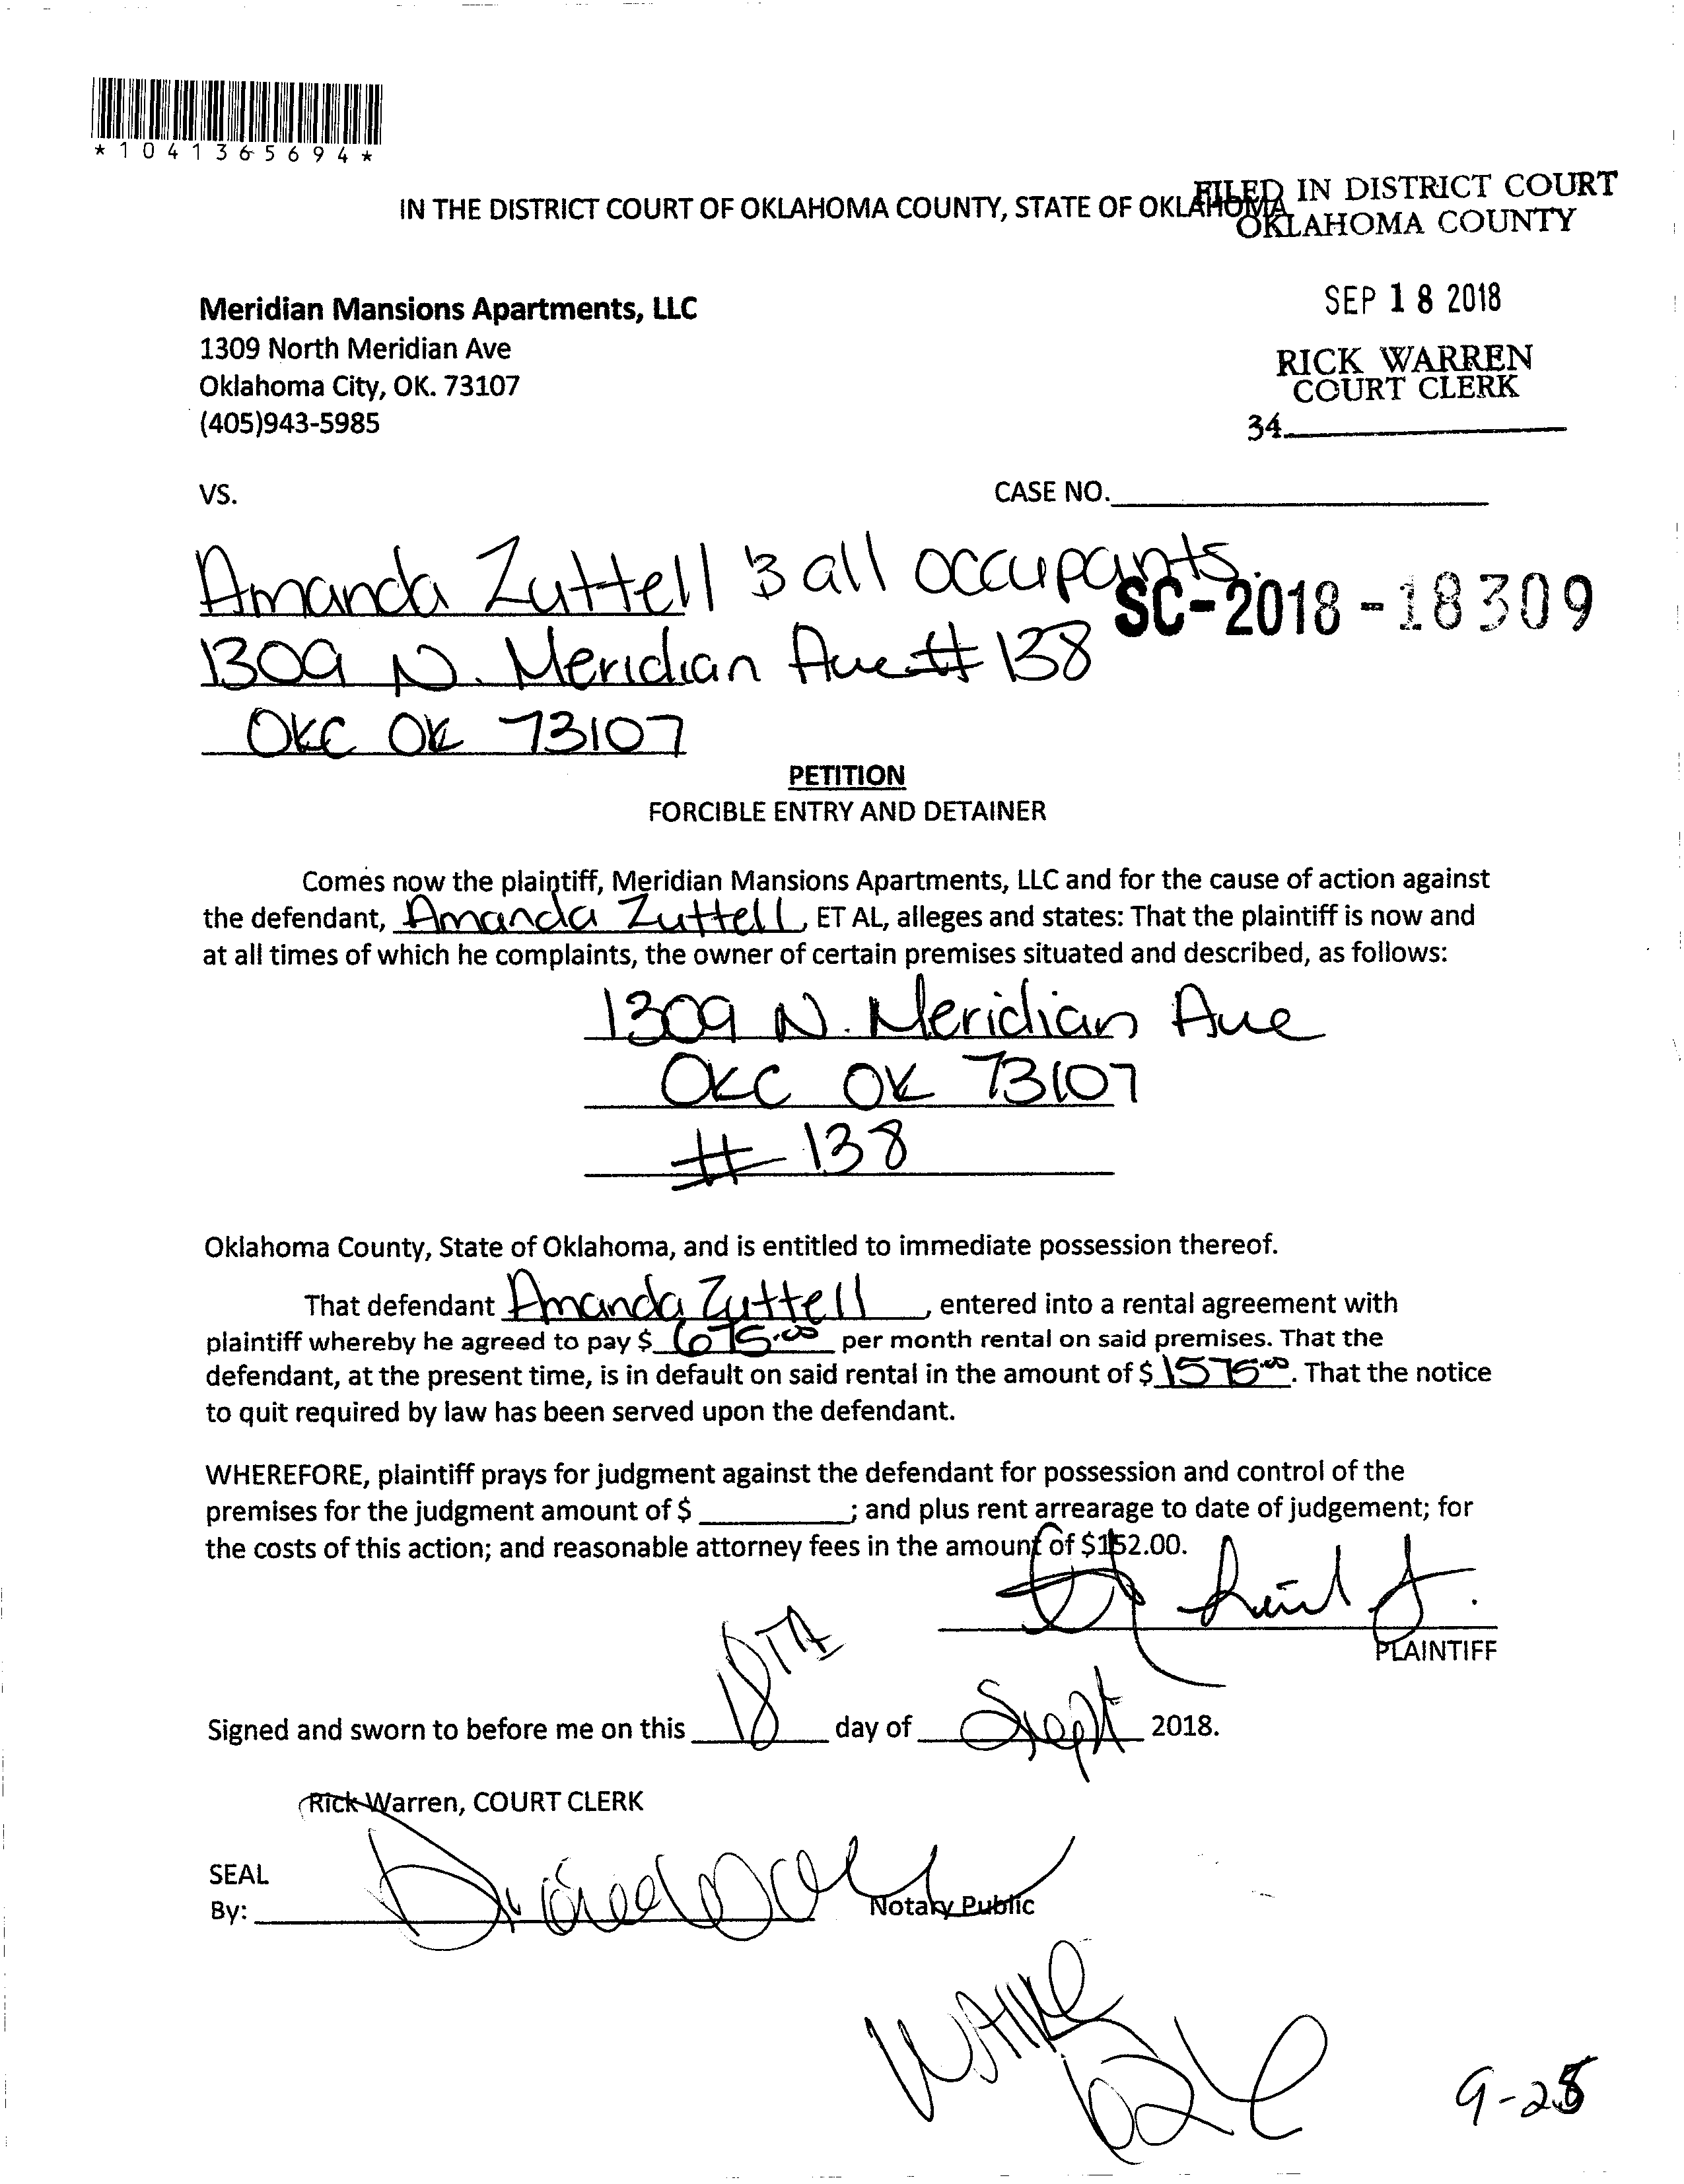 *1041365694*
IN THE DISTRICT COURT OF OKLAHOMA COUNTY, STATE OF OKLAHOMA
FILED IN DISTRICT COURT
OKLAHOMA COUNTY
SEP 18 2018
RICK WARREN
COURT CLERK
34
Meridian Mansions Apartments, LLC
1309 North Meridian Ave
Oklahoma City, OK. 73107
(405)943-5985
VS.
CASE NO.
Amanda Zuttell & all occupants.
SC-2018-18309
1309 N. Meridian Ave # 138
OKC OK 73107
PETITION
FORCIBLE ENTRY AND DETAINER
Comes now the plaintiff, Meridian Mansions Apartments, LLC and for the cause of action against
the defendant, Amanda Zuttell, ET AL, alleges and states: That the plaintiff is now and
at all times of which he complaints, the owner of certain premises situated and described, as follows:
1309 N. Meridian Ave
OKC OK 73107
# 138
Oklahoma County, State of Oklahoma, and is entitled to immediate possession thereof.
That defendant Amanda Zuttell, entered into a rental agreement with
plaintiff whereby he agreed to pay $ 675.00 per month rental on said premises. That the
defendant, at the present time, is in default on said rental in the amount of $ 1575.00. That the notice
to quit required by law has been served upon the defendant.
WHEREFORE, plaintiff prays for judgment against the defendant for possession and control of the
premises for the judgment amount of $ ; and plus rent arrearage to date of judgement; for
the costs of this action; and reasonable attorney fees in the amount of $152.00.
PLAINTIFF
Signed and sworn to before me on this 18th day of Sept 2018.
Rick Warren, COURT CLERK
SEAL
By: Notary Public
9-25